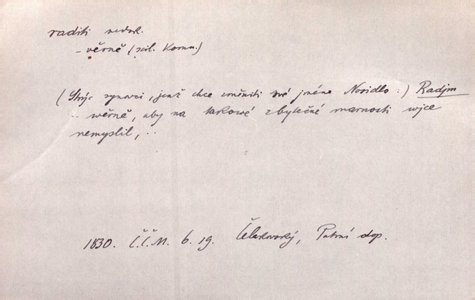 raditi nedok.
- věrně (
(Strýc synovci, jenž chce změniti své jméno Nosidlo:) Radjm
.. wěrně, aby na takowé zbytečné marnosti wjce
nemyslil, ..
1830. Č.Č.M. 6. 19. Čelakovský, Patrní dop.